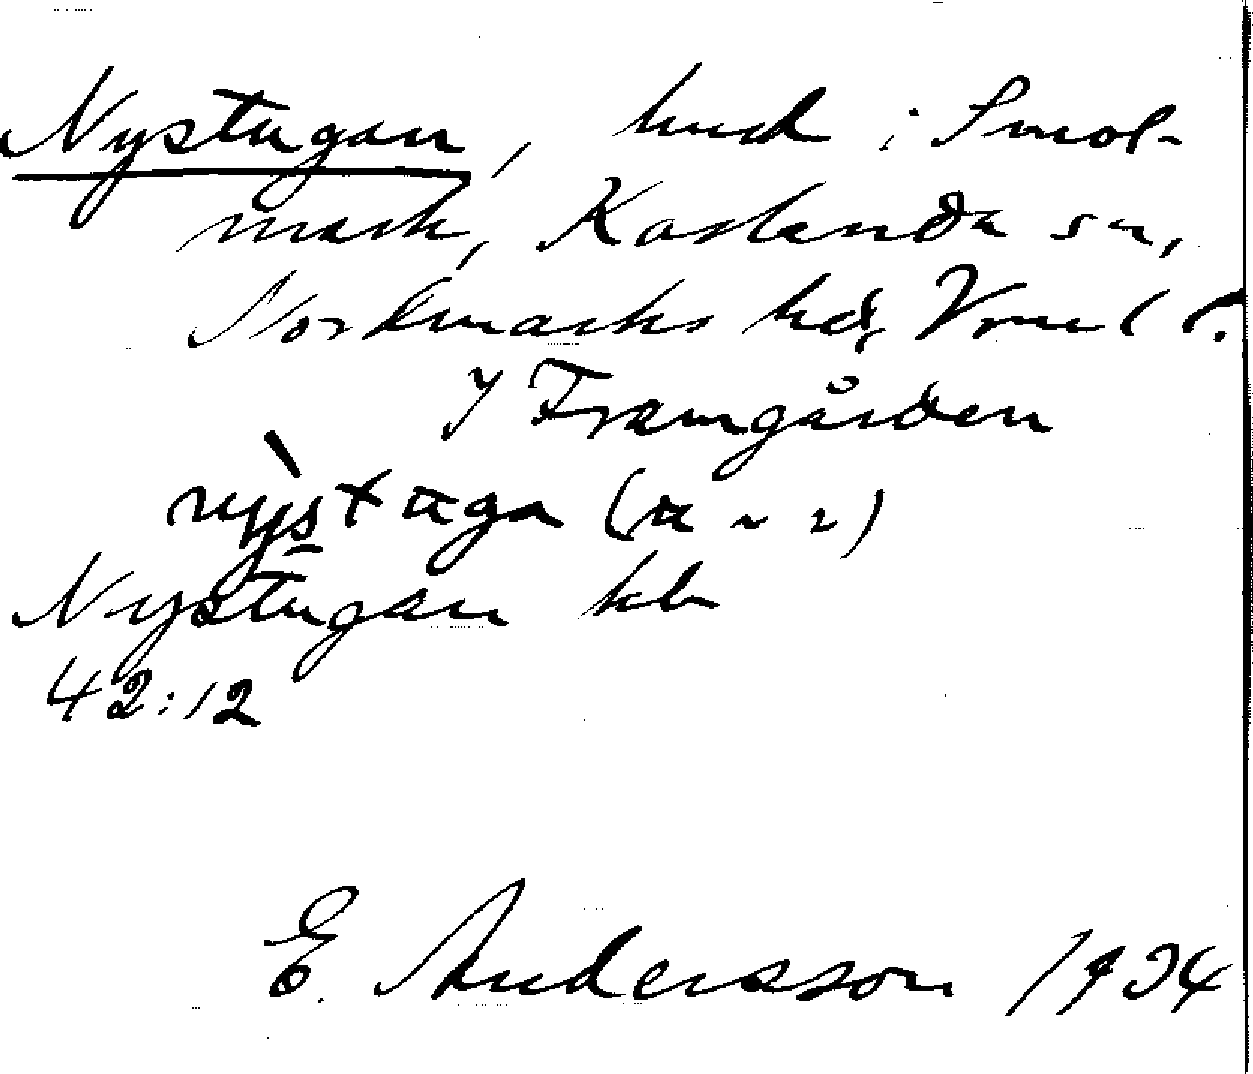 Nystugan, hmd i Smol-
mark, Karlanda sn,
Nordmarks hd, Vrml l.
Y Framgården
nỳstuga (a ~ ~)
Nystugan kb
42:12
E. Andersson 1934